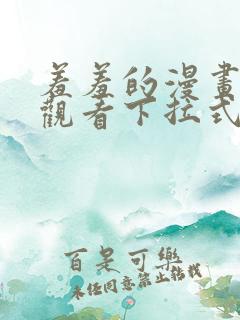 羞羞的漫畫
觀看下拉式
百是可樂
未经同意禁止转载